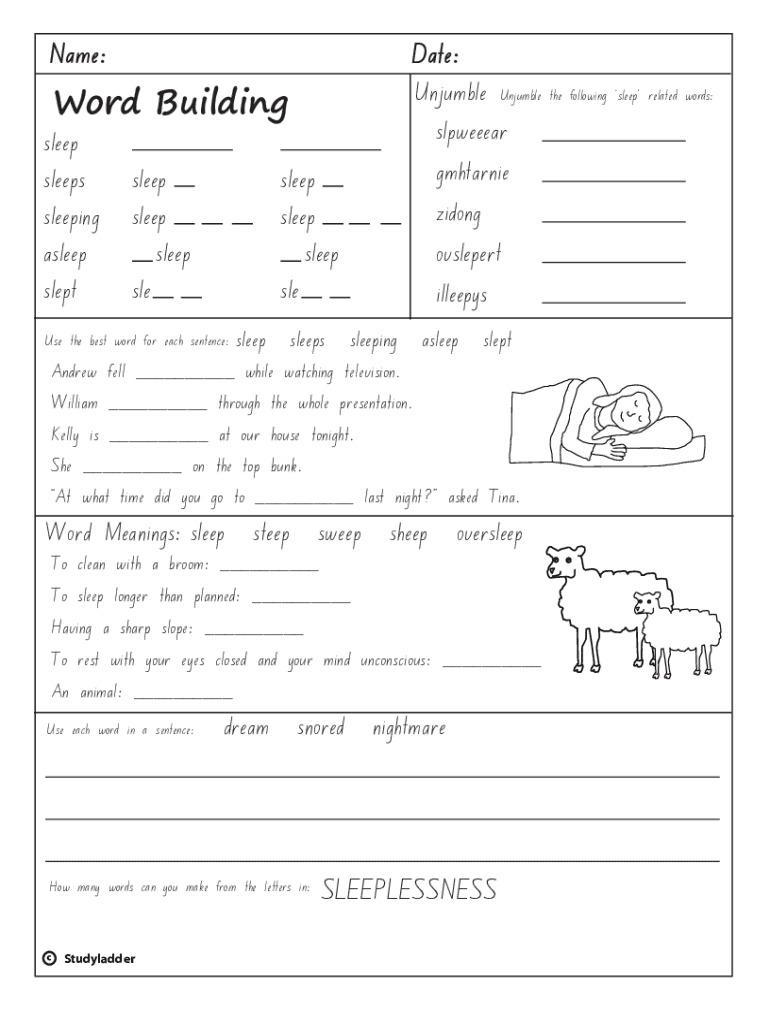 Name: Date:
Word Building
sleep __________ __________
sleeps sleep __ sleep __
sleeping sleep __ __ __ sleep __ __ __
asleep __ sleep __ sleep
slept sle__ __ sle__ __
Unjumble Unjumble the following 'sleep' related words:
slpweeear __________
gmhtarnie __________
zidong __________
ouslepert __________
illeepys __________
Use the best word for each sentence: sleep sleeps sleeping asleep slept
Andrew fell __________ while watching television.
William __________ through the whole presentation.
Kelly is __________ at our house tonight.
She __________ on the top bunk.
"At what time did you go to __________ last night?" asked Tina.
Word Meanings: sleep steep sweep sheep oversleep
To clean with a broom: __________
To sleep longer than planned: __________
Having a sharp slope: __________
To rest with your eyes closed and your mind unconscious: __________
An animal: __________
Use each word in a sentence: dream snored nightmare
How many words can you make from the letters in: SLEEPLESSNESS
© Studyladder